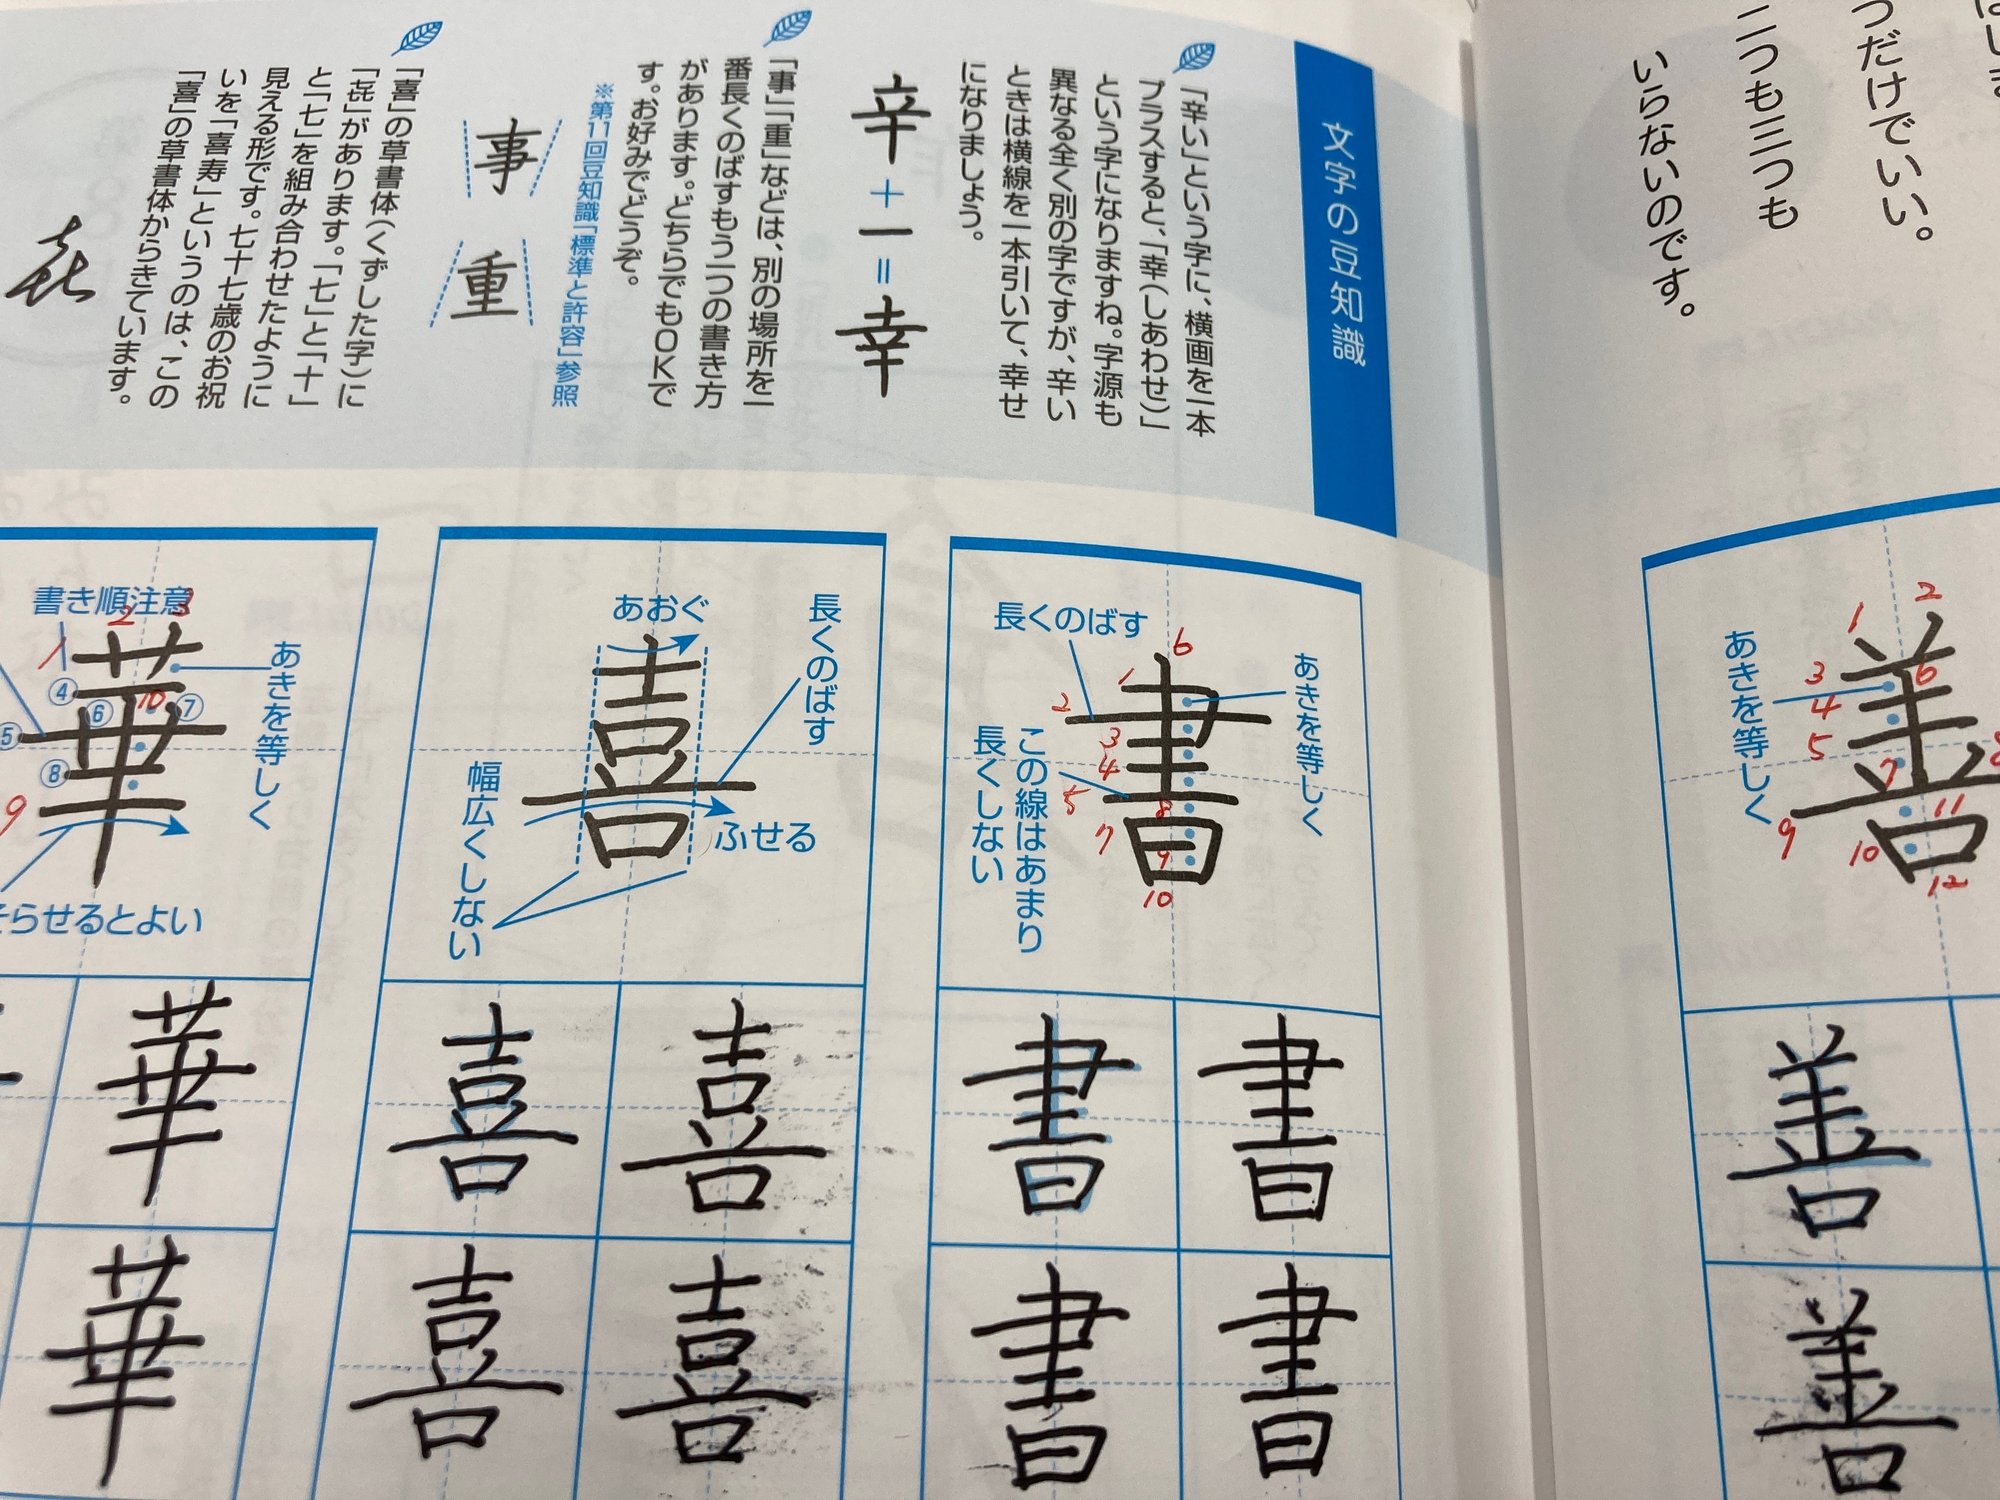 つだけでいい。
二つも三つも
いらないのです。
2
1
あきを等しく
3
6
4
5
7
8
9
11
10
12
善
善
善
文字の豆知識
「辛い」という字に、横画を一本
プラスすると、「幸(しあわせ)」
という字になりますね。字源も
異なる全く別の字ですが、辛い
ときは横線を一本引いて、幸せ
になりましょう。
辛+一=幸
「事」「重」などは、別の場所を一
番長くのばすもう一つの書き方
があります。どちらでもOKで
す。お好みでどうぞ。
※第11回豆知識「標準と許容」参照
事 重
「喜」の草書体(くずした字)に
「㐂」があります。「七」と「十」
と「七」を組み合わせたように
見える形です。七十七歳のお祝
いを「喜寿」というのは、この
「喜」の草書体からきています。
㐂
長くのばす
6
1
あきを等しく
2
書
3
4
5
この線はあまり
長くしない
8
7
9
10
書 書
書 書
あおぐ
長くのばす
喜
幅広くしない
ふせる
喜 喜
喜 喜
書き順注意
2
3
1
あきを等しく
④
10
⑥
⑦
⑤
華
⑧
9
そらせるとよい
華
華